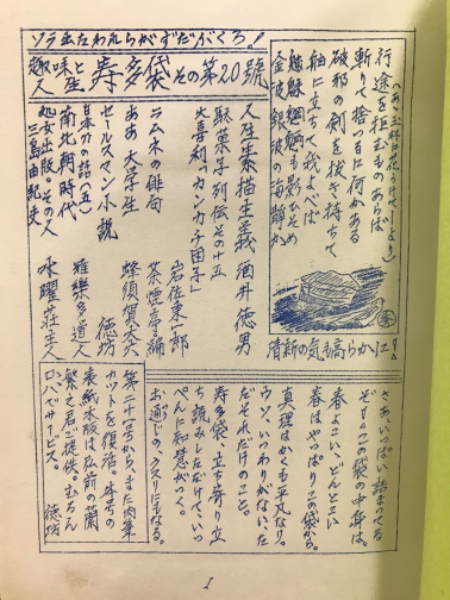 ソラ出たわれらがずだぶくろ!
趣味と
人生
寿多袋 その第20號
(あゝ玉杯に花うけてーより)
行途を拒むものあらば
斬りて捨つるに何かある
破邪の剣を抜き持ちて
舳に立ちて我よべば
魑魅魍魎も影ひそめ
金波銀波の海静か
清新の気も高らかに!
人生素描主義 酒井徳男
駄菓子列伝 その十五
大喜利「カンカチ団子」 岩佐東一郎
ラムネの俳句 茶煙亭編
ああ 大学生 蜂須賀大六
セールスマン小説 徳坊
日本刀の話(五)
南北朝時代 雅樂多道人
処女出版・その人
三島由紀夫 木曜荘主人
さあ、いっぱい詰まってる
ぞ!この袋の中身は。
春よこい、どんとこい
春はやっぱりこの袋から。
真理はかくも平凡なり。
ウソ、いつわりがない、た
だそれだけのこと。
寿多袋、立ち寄り立
ち読みしただけで、いっ
ぺんに知慧がつく。
お通じの、クスリにもなる。
第二十一号から、また肉筆
カットを復活。本号の
表紙木版は弘前の蘭
繁之君ご提供。むろん
ロハでサービス。 徳坊
1